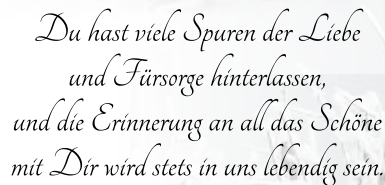 Du hast viele Spuren der Liebe
und Fürsorge hinterlassen,
und die Erinnerung an all das Schöne
mit Dir wird stets in uns lebendig sein.